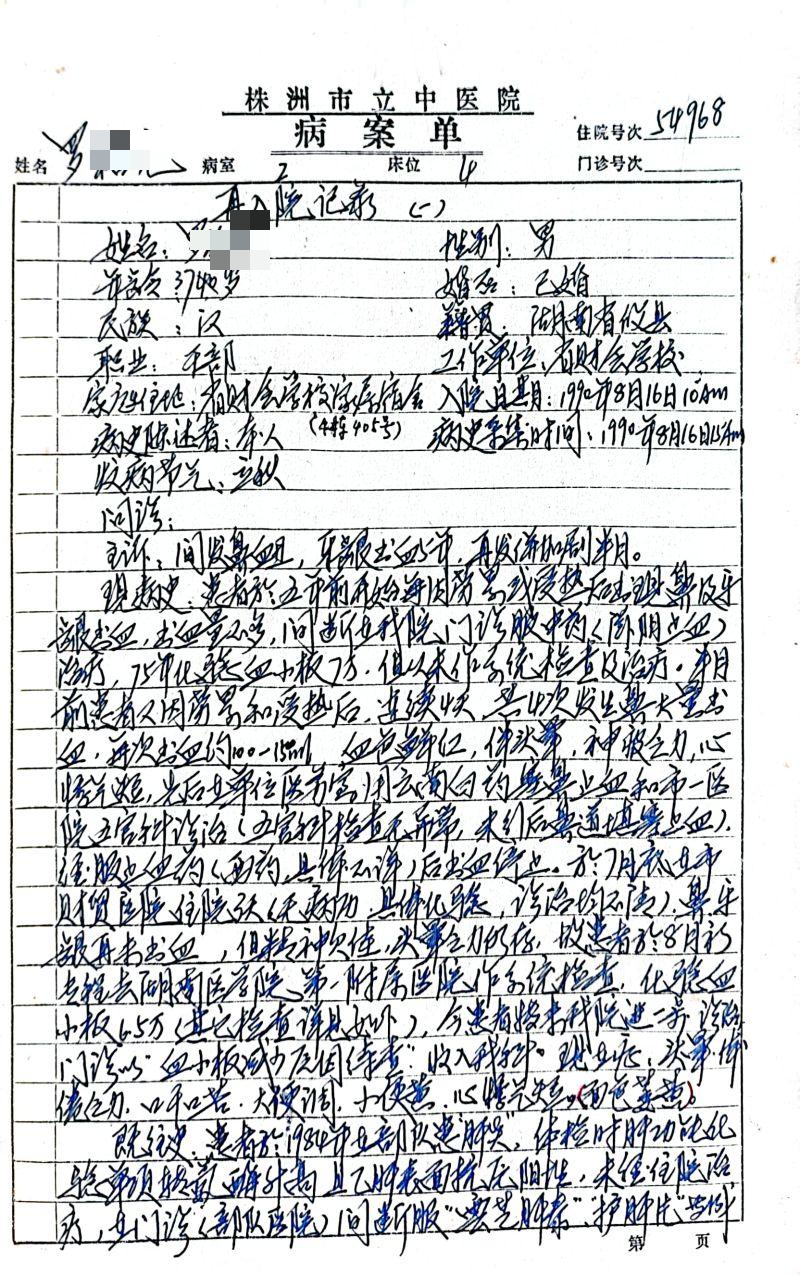 株洲市立中医院
病案单
住院号次 54968
姓名 罗 病室 2 床位 4 门诊号次
再入院记录 (一)
姓名：罗 性别：男
年龄：37岁 婚否：已婚
民族：汉 籍贯：湖南省攸县
职业：干部 工作单位：省财会学校
家庭住地：省财会学校家属宿舍 入院日期：1990年8月16日10Am
病史陈述者：本人 (4栋405号) 病史采集时间：1990年8月16日15Am
发病节气：立秋
问诊：
主诉：间发鼻衄，牙龈出血5年，再发併加剧半月。
现病史：患者於五年前开始每因劳累或受热后出现鼻及牙
龈出血，出血量不多，间断在我院门诊服中药(滋阴止血)
治疗，75年化验血小板7万，但以未作系统检查及治疗。半月
前患者又因劳累和受热后，连续 共4次发生鼻大量出
血，每次出血约100-150ml 血色鲜红，伴头晕，神疲乏力，心
悸气短，先后在单位医务室用云南白药塞鼻止血和市一医
院五官科诊治(五官科检查无异常，未行后鼻道填塞止血)。
经服止血药(西药具体不详)后出血停止。於7月底在市
财贸医院住院 (无病历 具体化验，诊治均不详)。鼻牙
龈再未出血，但精神欠佳，头晕乏力仍存，故患者於8月初
专程去湖南医学院第一附属医院作系统检查，化验血
小板6.5万(其它检查详见如外)，今患者转来我院进一步诊治
门诊以“血小板减少原因待查”收入我科。现在症：头晕体
倦乏力，口干口苦，大便调，小便黄，心悸气短。(面色萎黄)。
既往史：患者於1984年在部队患“肺炎”，体检时肝功能化
验单项转氨酶升高且乙肝表面抗原阳性，未经住院治
疗，在门诊(部队医院)间断服“云芝肝泰”、“护肝片”
第 页